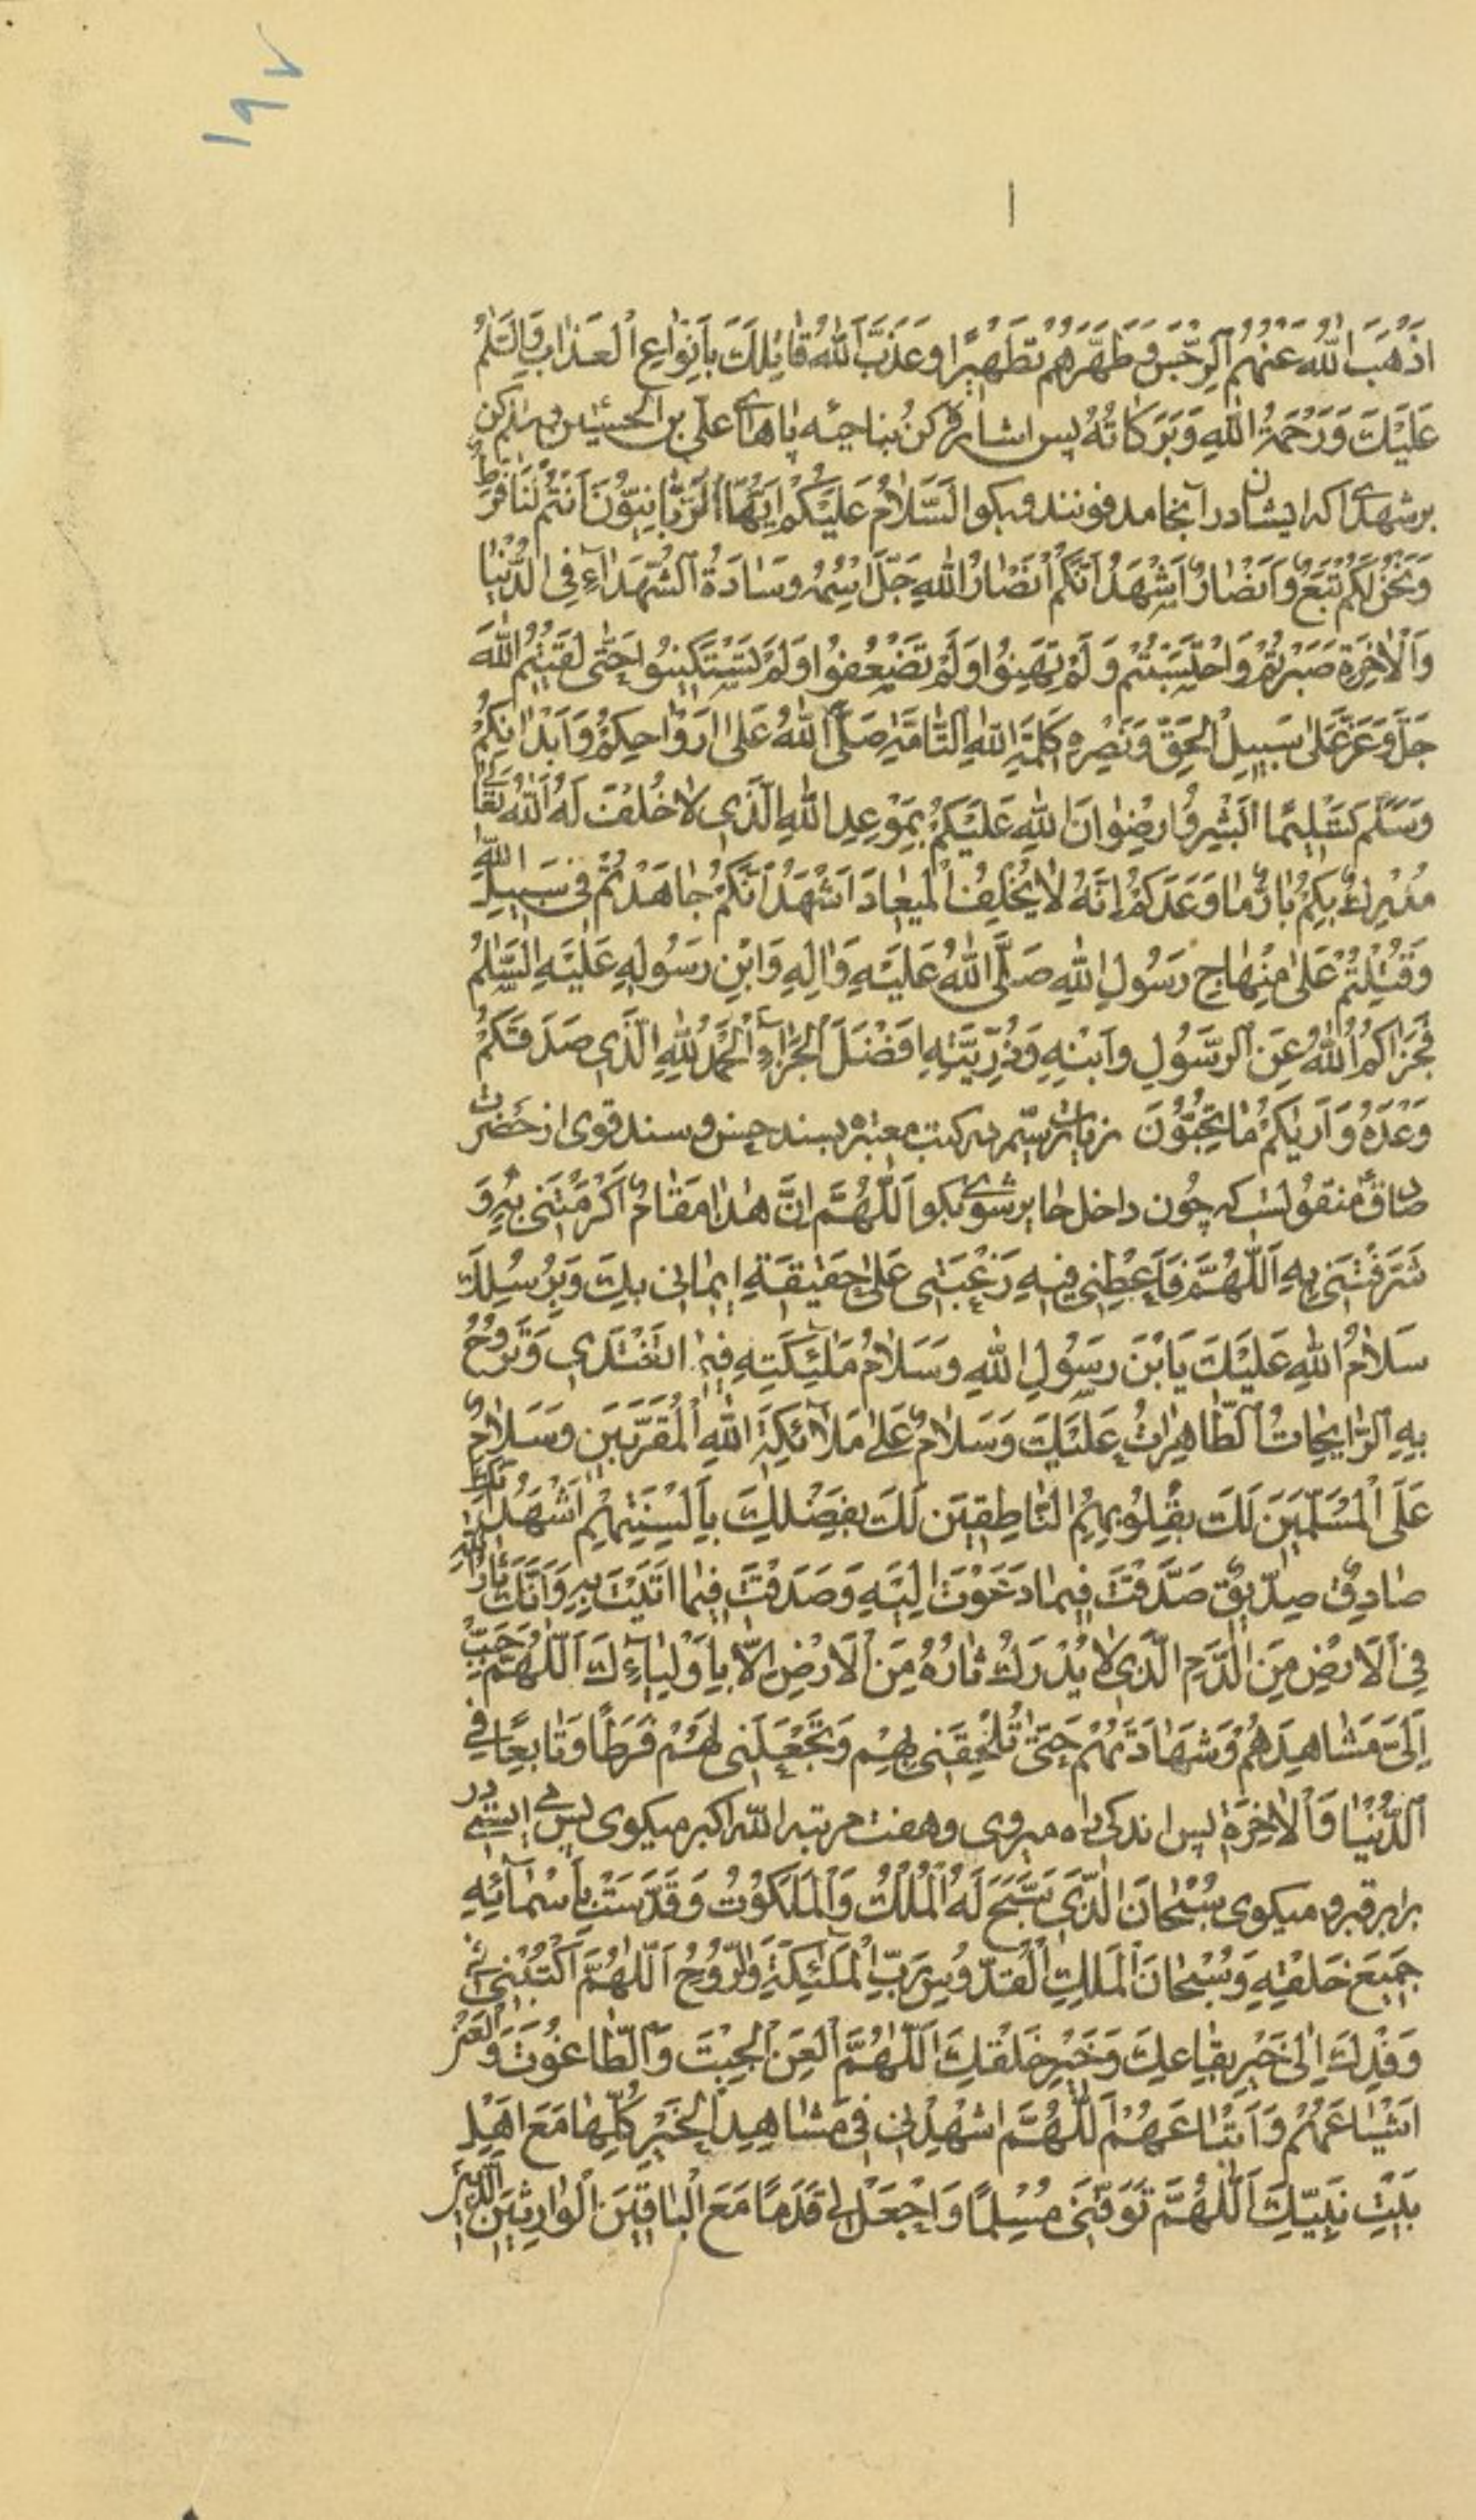 ١٩٧
اَذْهَبَ اللّٰهُ عَنْهُمُ الرِّجْسَ وَطَهَّرَهُمْ تَطْهِيرًا وَعَذَّبَ اللّٰهُ قَاتِلَكَ بِاَنْوَاعِ الْعَذَابِ وَالسَّلٰمُ
عَلَيْكَ وَرَحْمَةُ اللّٰهِ وَبَرَكَاتُهُ پس اشاره كن بناحيه پاهاى على بن الحسين و سلام كن
بر شهدا كه ايشان در آنجا مدفونند و بكو اَلسَّلَامُ عَلَيْكُمْ اَيُّهَا الرَّبَّانِيُّونَ اَنْتُمْ لَنَا فَرَطٌ
وَنَحْنُ لَكُمْ تَبَعٌ وَاَنْصَارٌ اَشْهَدُ اَنَّكُمْ اَنْصَارُ اللّٰهِ جَلَّ اسْمُهُ وَسَادَةُ الشُّهَدَاۤءِ فِى الدُّنْيَا
وَالْاٰخِرَةِ صَبَرْتُمْ وَاحْتَسَبْتُمْ وَلَمْ تَهِنُوا وَلَمْ تَضْعُفُوا وَلَمْ تَسْتَكِينُوا حَتّٰى لَقِيتُمُ اللّٰهَ
جَلَّ وَعَزَّ عَلٰى سَبِيلِ الْحَقِّ وَنَصْرِهِ وَكَلِمَةِ اللّٰهِ التَّامَّةِ صَلَّى اللّٰهُ عَلٰى اَرْوَاحِكُمْ وَاَبْدَانِكُمْ
وَسَلَّمَ تَسْلِيمًا اَبْشِرُوا رِضْوَانَ اللّٰهِ عَلَيْكُمْ بِمَوْعِدِ اللّٰهِ الَّذِى لَا خُلْفَ لَهُ اللّٰهُ تَعَالٰى
مُدْرِكٌ بِكُمْ ثَارَ مَا وَعَدَكُمْ اِنَّهُ لَا يُخْلِفُ الْمِيعَادَ اَشْهَدُ اَنَّكُمْ جَاهَدْتُمْ فِى سَبِيلِ اللّٰهِ
وَقُتِلْتُمْ عَلٰى مِنْهَاجِ رَسُولِ اللّٰهِ صَلَّى اللّٰهُ عَلَيْهِ وَاٰلِهِ وَابْنِ رَسُولِهِ عَلَيْهِ السَّلٰمُ
فَجَزَاكُمُ اللّٰهُ عَنِ الرَّسُولِ وَابْنِهِ وَذُرِّيَّتِهِ اَفْضَلَ الْجَزَاۤءِ اَلْحَمْدُ لِلّٰهِ الَّذِى صَدَقَكُمْ
وَعْدَهُ وَاَرٰيكُمْ مَا تُحِبُّونَ زيارت سيّم در كتب معتبره بسند حسن و سند قوى از حضرت
صادق منقولست كه چون داخل حاير شوى بكو اَللّٰهُمَّ اِنَّ هٰذَا مَقَامٌ اَكْرَمْتَنِى بِهِ وَ
شَرَّفْتَنِى بِهِ اَللّٰهُمَّ فَاَعْطِنِى فِيهِ رَغْبَتِى عَلٰى حَقِيقَةِ اِيمَانِى بِكَ وَبِرُسُلِكَ
سَلَامُ اللّٰهِ عَلَيْكَ يَا بْنَ رَسُولِ اللّٰهِ وَسَلَامُ مَلٰۤئِكَتِهِ فِيمَا تَغْتَدِى وَتَرُوحُ
بِهِ الرَّايِحَاتُ الطَّاهِرَاتُ عَلَيْكَ وَسَلَامٌ عَلٰى مَلَاۤئِكَةِ اللّٰهِ الْمُقَرَّبِينَ وَسَلَامٌ
عَلَى الْمُسَلِّمِينَ لَكَ بِقُلُوبِهِمُ النَّاطِقِينَ لَكَ بِفَضْلِكَ بِاَلْسِنَتِهِمْ اَشْهَدُ اَنَّكَ
صَادِقٌ صِدِّيقٌ صَدَّقْتَ فِيمَا دَعَوْتَ اِلَيْهِ وَصَدَقْتَ فِيمَا اَتَيْتَ بِهِ وَاَنَّكَ ثَارُ اللّٰهِ
فِى الْاَرْضِ مِنَ الدَّمِ الَّذِى لَا يُدْرَكُ ثَارُهُ مِنَ الْاَرْضِ اِلَّا بِاَوْلِيَاۤءِكَ اَللّٰهُمَّ حَبِّبْ
اِلَىَّ مَشَاهِدَهُمْ وَشَهَادَتَهُمْ حَتّٰى تُلْحِقَنِى بِهِمْ وَتَجْعَلَنِى لَهُمْ فَرَطًا وَتَابِعًا فِى
الدُّنْيَا وَالْاٰخِرَةِ پس اندكى راه ميروى و هفت مرتبه اللّٰه اكبر ميكوى پس مى ايستى در
برابر قبر و ميكوى سُبْحَانَ الَّذِى سَبَّحَ لَهُ الْمُلْكُ وَالْمَلَكُوتُ وَقَدَّسَتْ بِاَسْمَاۤئِهِ
جَمِيعُ خَلْقِهِ وَسُبْحَانَ الْمَلِكِ الْقُدُّوسِ رَبِّ الْمَلٰۤئِكَةِ وَالرُّوحِ اَللّٰهُمَّ اكْتُبْنِى فِى
وَفْدِكَ اِلٰى خَيْرِ بِقَاعِكَ وَخَيْرِ خَلْقِكَ اَللّٰهُمَّ الْعَنِ الْجِبْتَ وَالطَّاغُوتَ وَالْعَنْ
اَشْيَاعَهُمْ وَاَتْبَاعَهُمْ اَللّٰهُمَّ اَشْهِدْنِى فِى مَشَاهِدِ الْخَيْرِ كُلِّهَا مَعَ اَهْلِ
بَيْتِ نَبِيِّكَ اَللّٰهُمَّ تَوَفَّنِى مُسْلِمًا وَاجْعَلْ لِى قَدَمًا مَعَ الْبَاقِينَ الْوَارِثِينَ الَّذِينَ